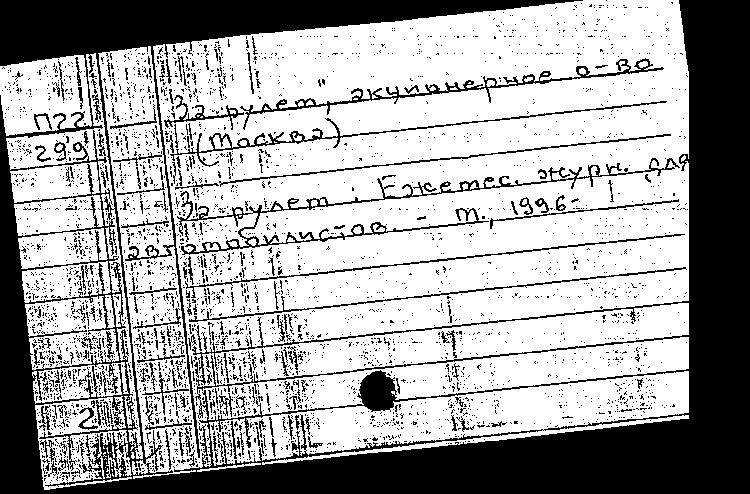 П22
299
За рулем", акционерное о-во
(Москва)
За рулем : Ежемес. журн. для
автомобилистов. - М., 1996-
2